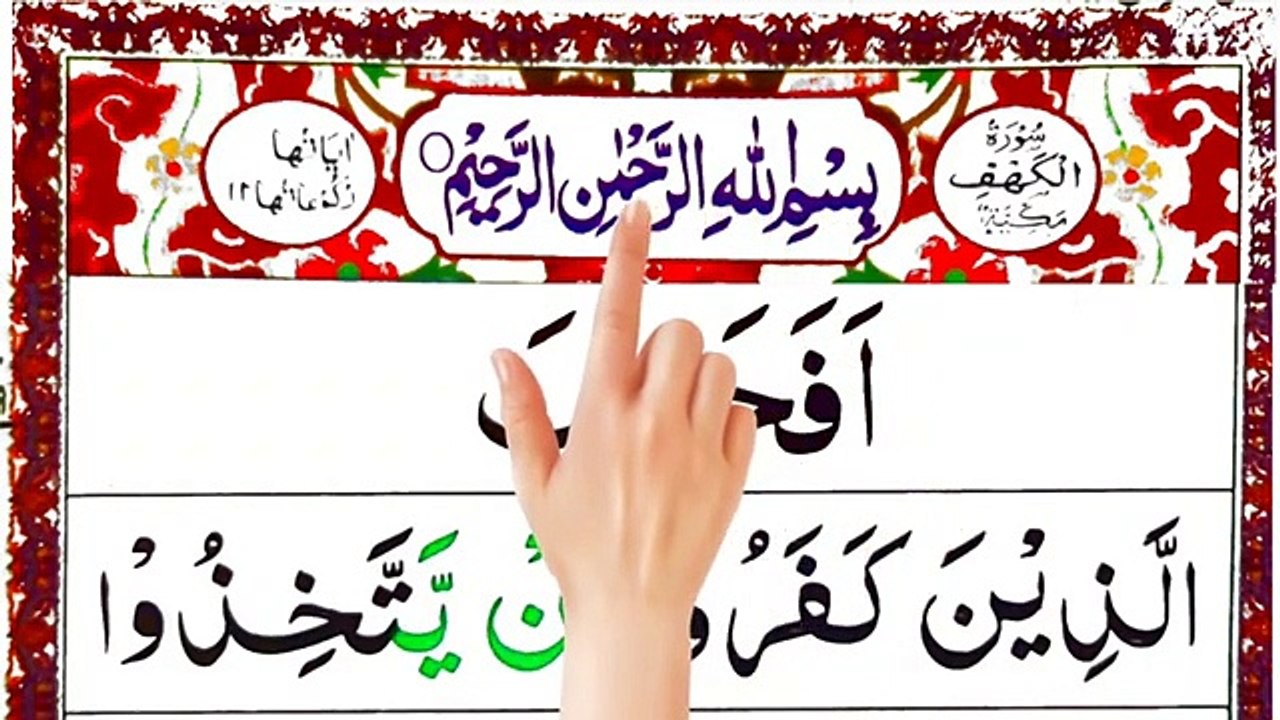 سُوْرَةُ
الْكَهْفِ
مَكِّيَّةٌ
بِسْمِ اللّٰهِ الرَّحْمٰنِ الرَّحِيْمِ
اٰيَاتُهَا
رُكُوْعَاتُهَا ١٢
اَفَحَ بَ
الَّذِيْنَ كَفَرُو نْ يَّتَّخِذُوْا